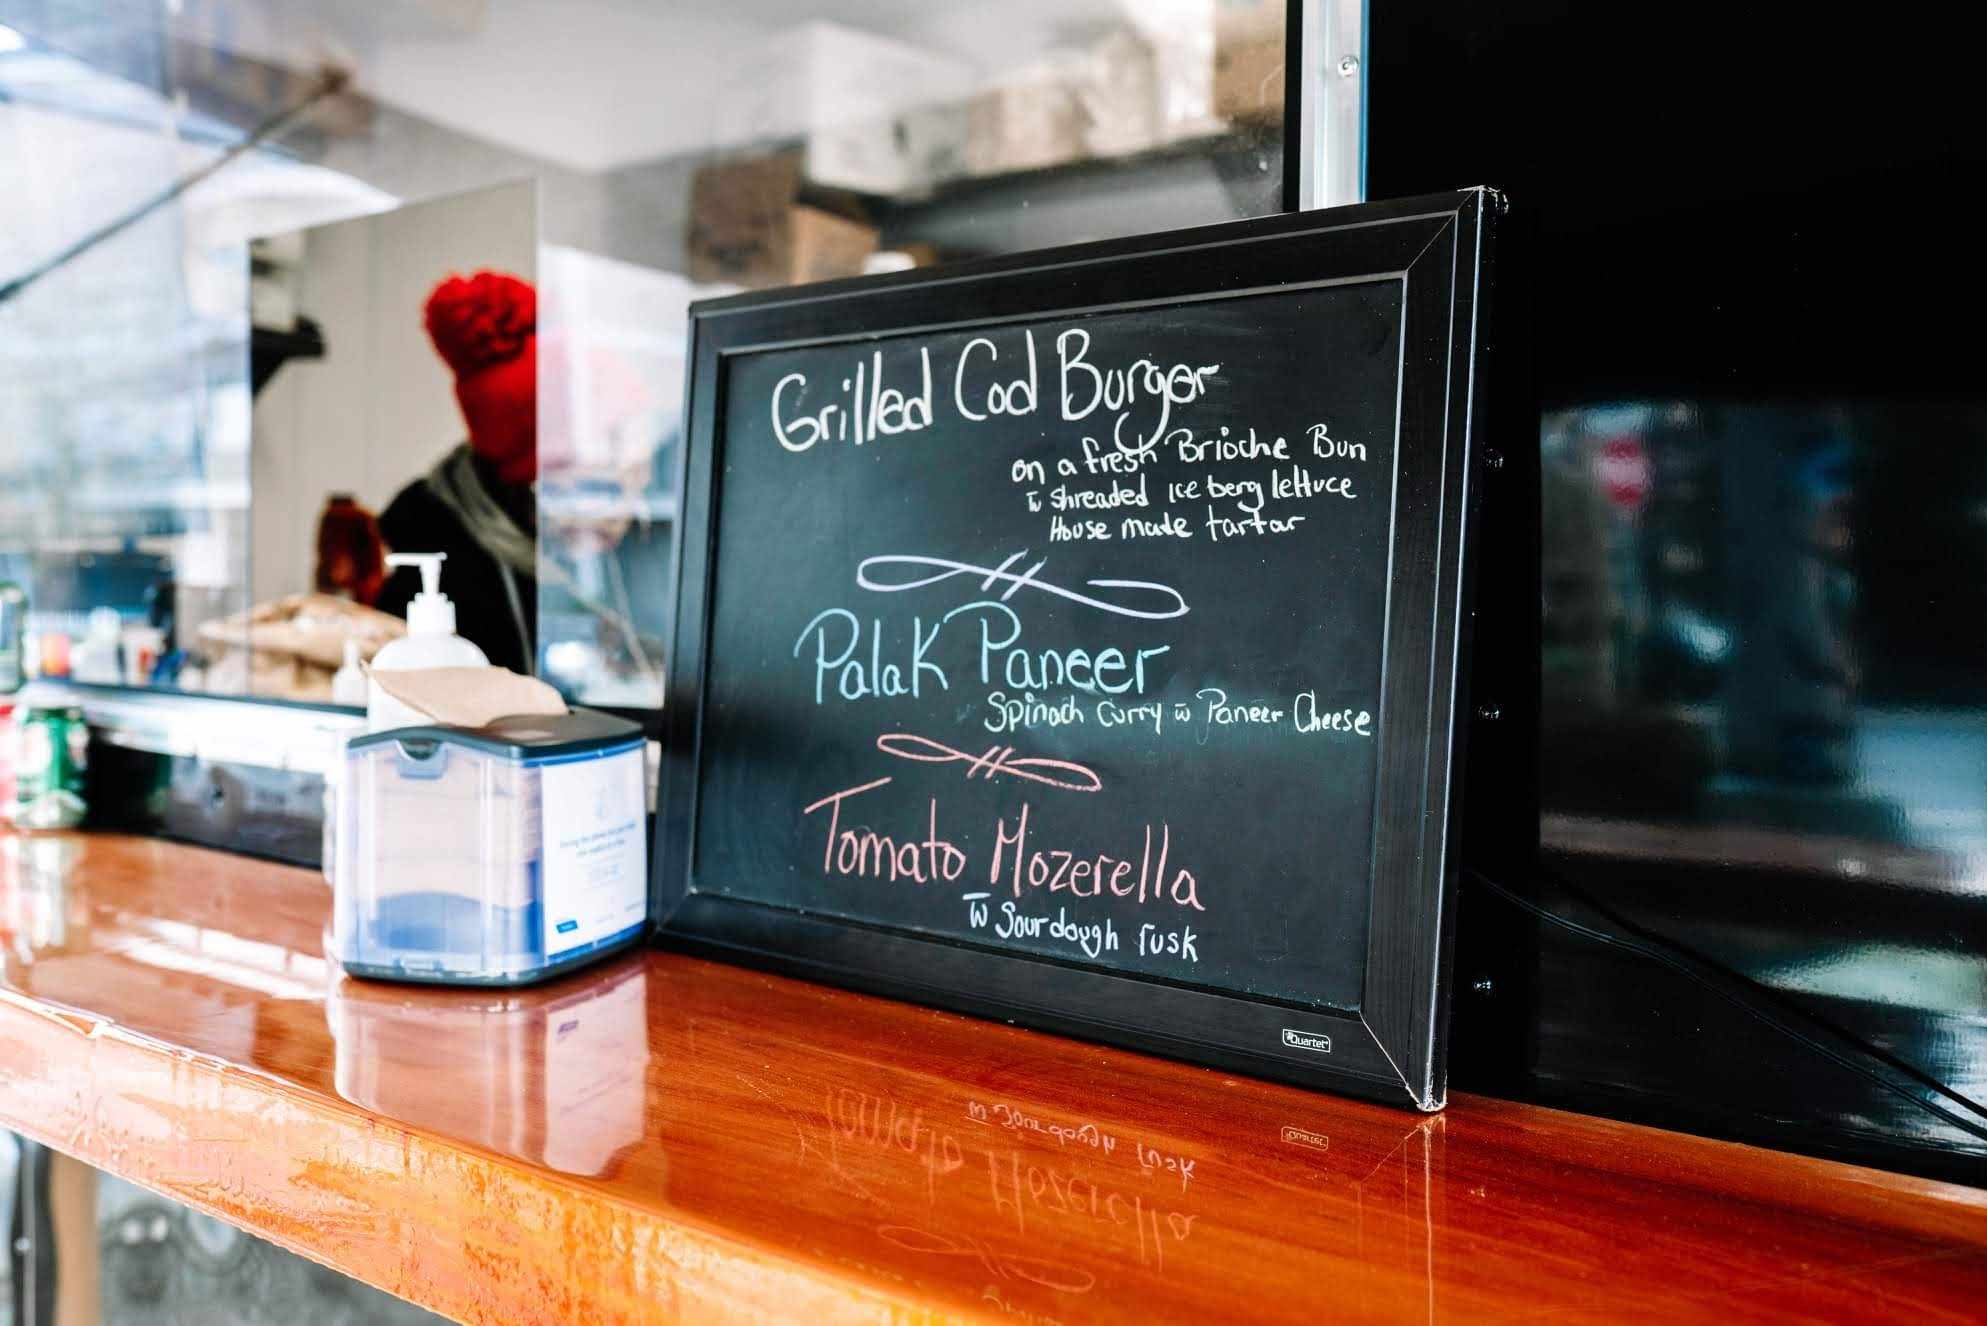 Grilled Cod Burger
on a fresh Brioche Bun
w̄ shreaded iceberg lettuce
House made tartar
Palak Paneer
Spinach Curry w̄ Paneer Cheese
Tomato Mozerella
w̄ Sourdough rusk
Quartet